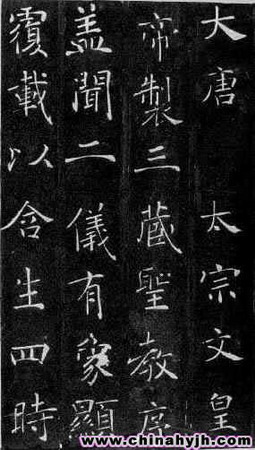 大唐 太宗文皇
帝製三藏聖教序
盖聞二儀有象顯
覆載以含生四時
www.chinahyjh.com